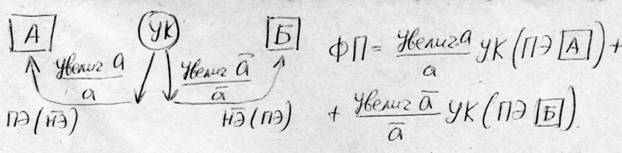 А УК Б
увелич a / a
увелич a̅ / a̅
ПЭ (Н̅Э̅)
Н̅Э̅ (ПЭ)
ФП = увелич a / a УК (ПЭ А) +
+ увелич a̅ / a̅ УК (ПЭ Б)